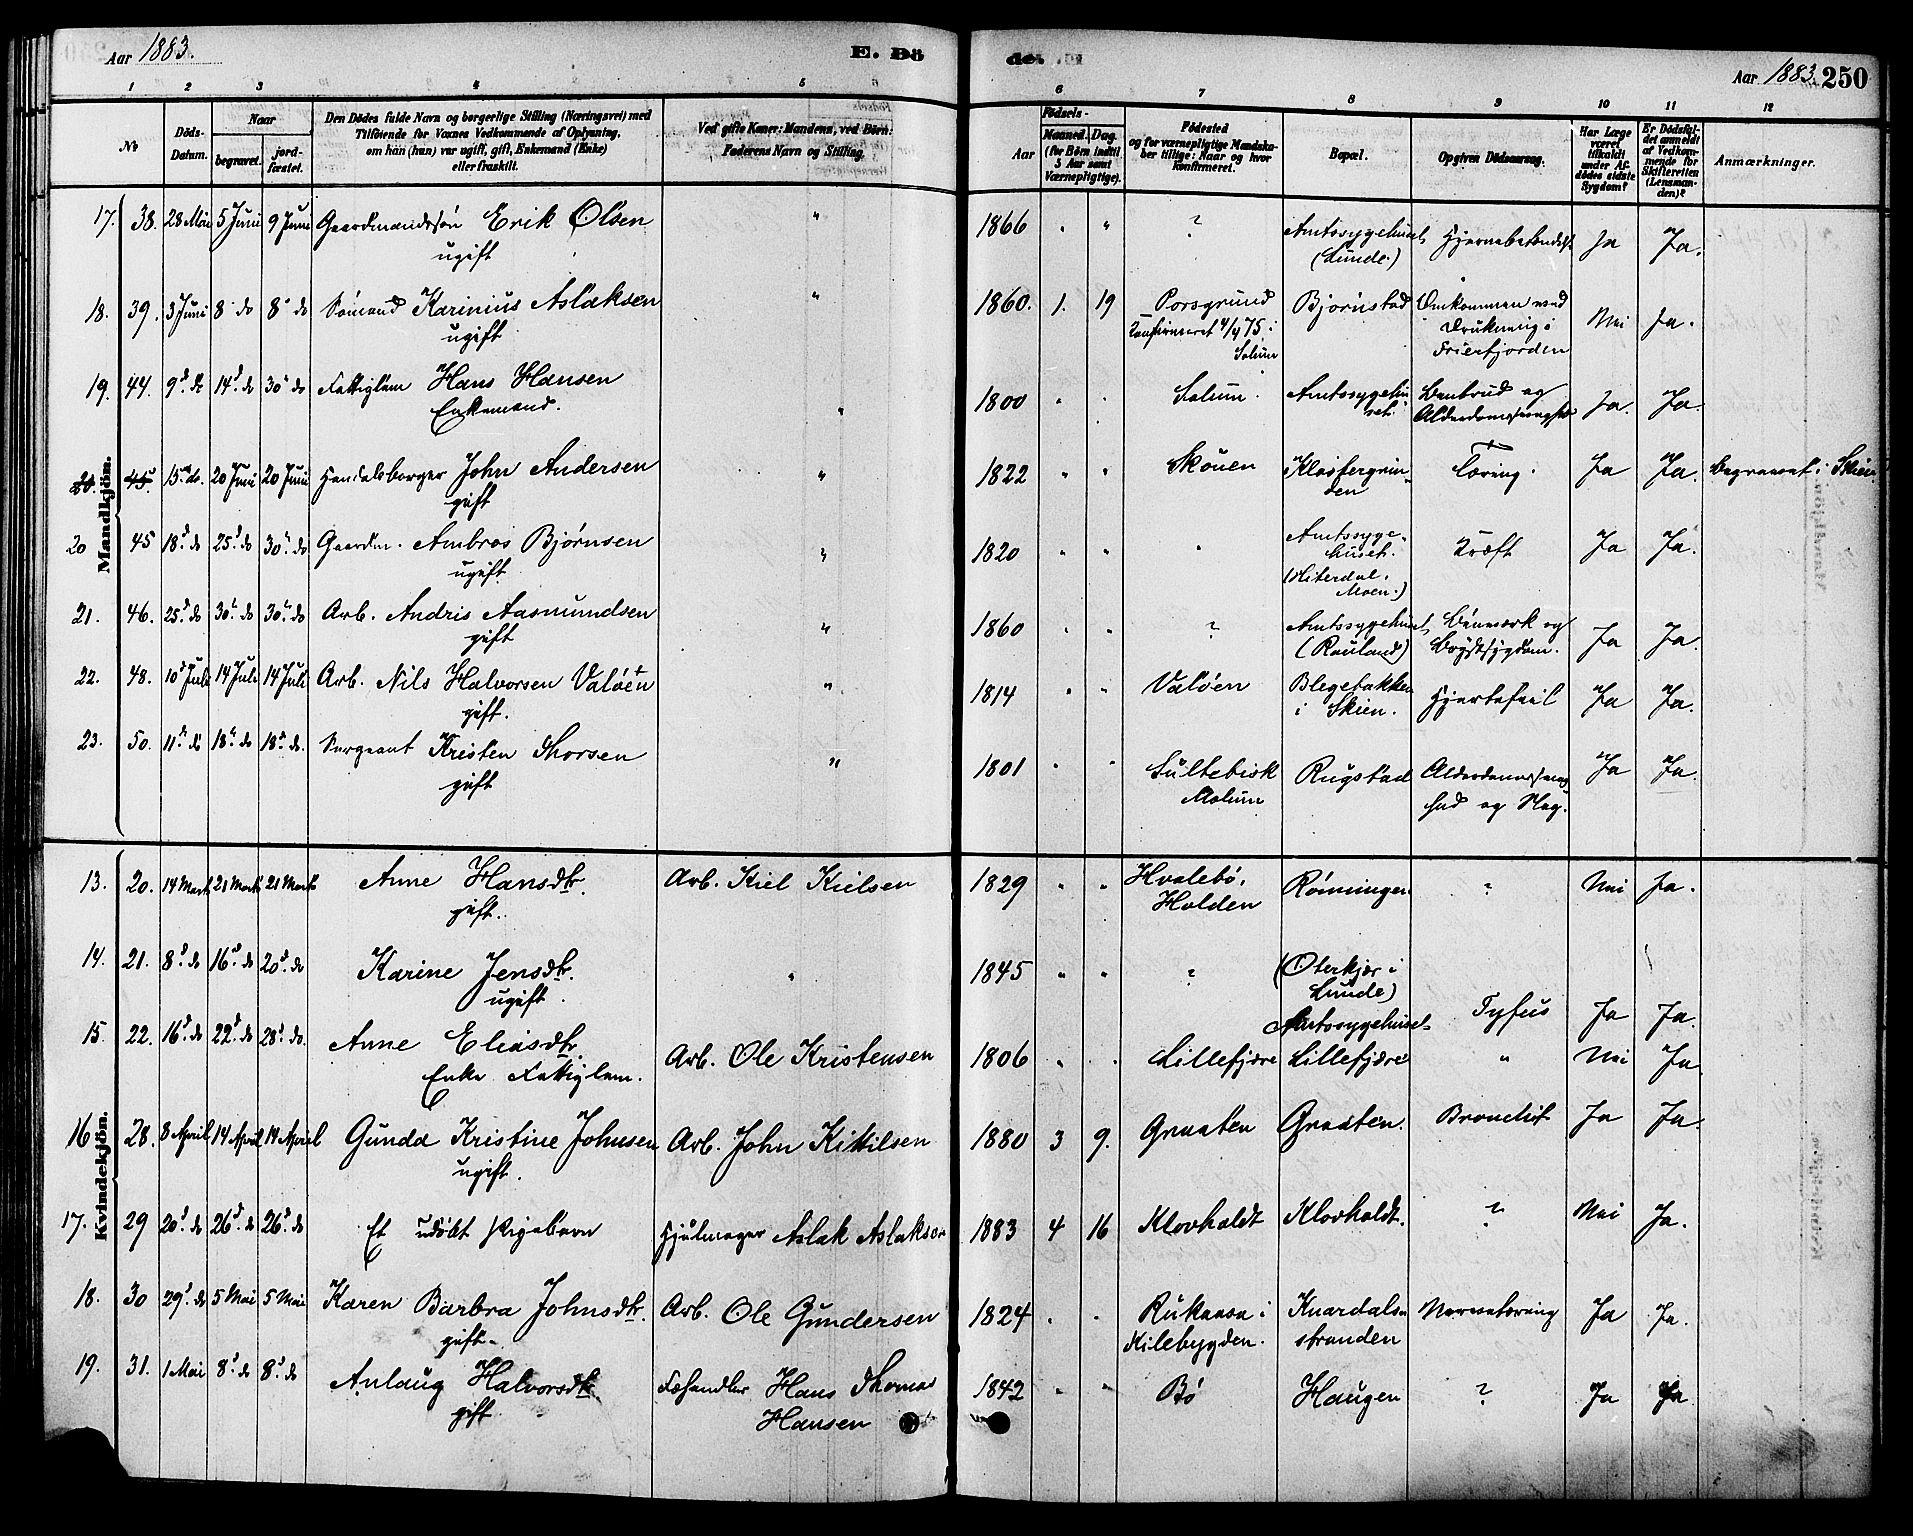 Aar 1883. E. Dö
de. Aar 1883. 250
1 2 3 4 5 6 7 8 9 10 11 12
No Döds-Datum. Naar begravet. jordfæstet. Den Dödes fulde Navn og borgerlige Stilling (Næringsvei) med Tilföiende for Voxnes Vedkommende af Oplysning, om han (hun) var ugift, gift, Enkemand (Enke) eller fraskilt. Ved gifte Koner: Mandens, ved Börn: Faderens Navn og Stilling. Aar Födsels- Maaned. Dag. (for Börn indtil 5 Aar samt Værnepligtige). Födested og for værnepligtige Mandskaber tillige: Naar og hvor konfirmeret. Bopæl. Opgiven Dödsaarsag. Har Læge været tilkaldt under Afdödes sidste Sygdom? Er Dödsfaldet anmeldt af Vedkommende for Skifteretten (Lensmanden)? Anmærkninger.
Mandkjön.
17. 38. 28 Mai 5 Juni 9 Juni Gaardmandssøn Erik Olsen " 1866 " " ? Amtssygehuset Hjernebetændelse Ja Ja.
ugift (Lunde.)
18. 39. 3 Juni 8 do 8 do Sømand Karinius Aslaksen " 1860. 1. 19 Porsgrund Bjørnstad Omkommen ved Nei Ja.
ugift Konfirmeret 4/4 75 i Drukning i
Solum Frierfjorden
19. 44. 9d do 14d do 30d do Fattiglem Hans Hansen " 1800 " " Solum. Amtssygehuset. og Ja. Ja.
Enkemand.
20. 45. 15de do. 20 Juni 20 Juni Handelsborger John Andersen " 1822 " " Skouen Klostergrinden Tæring. Ja Ja. Begravet i Skien
gift
20 45 18d do 25d do 30d do Gaardm. Ambros Bjørnsen " 1820 " " " Amtssygehuset. Kræft Ja Ja.
ugift (Hiterdal. Moen.)
21. 46. 25d do 30d do 30d do Arb. Andris Aasmundsen " 1860 " " ? Amtssygehuset og Ja Ja.
gift (Rauland)
22. 48. 10 Juli 14 Juli 14 Juli Arb. Nils Halvorsen Valøen " 1814 " " Valøen Blegebakken Hjertefeil Ja Ja.
gift. i Skien.
23. 50. 11d do 18d do 18d do. Sergeant Kristen Thorsen " 1801 " " Rugstad Ja Ja.
gift og Slag.
Kvindekjön.
13. 20. 14 Marts 21 Marts 21 Marts Anne Hansdtr. Arb. Kiel Kielsen 1829 " " Hvalebø, Rønningen ? Nei Ja.
gift. Holden
14. 21. 8d do 16d do 20d do Karine Jensdtr. " 1845 " " ? (Oterkjær i
ugift. Lunde)
Amtssygehuset Tyfus Ja Ja.
15 22. 16d do 22d do 28d do Anne Eliasdtr. Arb. Ole Kristensen 1806 " . Lillefjære Lillefjære " Nei Ja.
Enke Fattiglem.
16 28. 8 April 14 April 14 April Gunda Kristine Johnsen Arb. John Kittilsen 1880 3 9. Graaten Graaten. Bronchit Ja Ja.
ugift.
17. 29 20d do 26d do 26d do Et udøbt Pigebarn Hjulmager Aslak Aslaksen 1883 4 16 Klovholdt Klovholdt. ? Nei Ja.
18. 30 29d do 5 Mai 5 Mai Karen Barbra Johnsdtr. Arb. Ole Gundersen 1824 " " Rukaasa i Knardals- Nervetæring Ja Ja.
gift. Kilebygden. stranden
19. 31. 1 Mai 8d do 8d do Anlaug Halvorsdtr. Fæhandler Hans Thomas 1842 " " Bø Haugen ? Ja Ja
gift Hansen